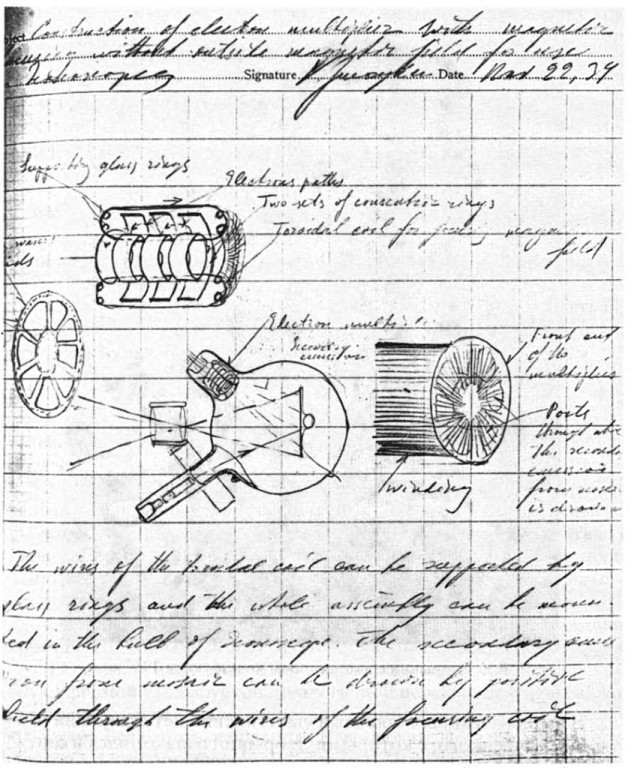 Construction of electron multiplier with magnetic
focusing without outside magnetic field for use
Iconoscopes Signature Date Nov. 22, 34
Supporting glass rings
Electrons paths
Two sets of concentric rings
Toroidal coil for focusing magn
field
Electron multip
Secondary
emission
Front end
of the
multiplier
Ports
through
the second
emission
from mosaic
is drawn
winding
The wires of the toroidal coil can be supported by
glass rings and the whole assembly can be moun-
ted in the bulb of Iconoscope. The secondary emiss
ion from mosaic can be drawn by positive
field through the wires of the focusing coil